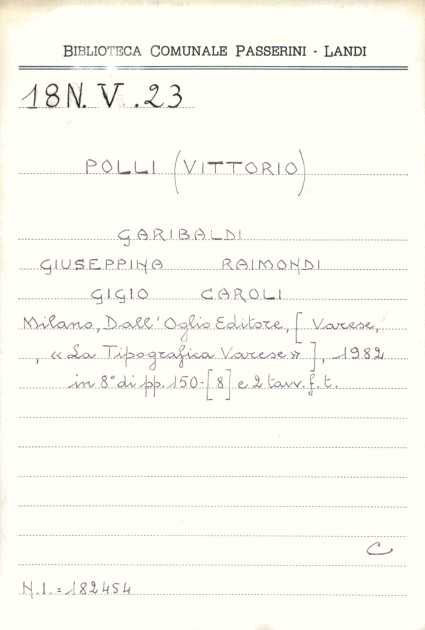 BIBLIOTECA COMUNALE PASSERINI - LANDI
18 N. V. 23
POLLI (VITTORIO)
GARIBALDI
GIUSEPPINA RAIMONDI
GIGIO CAROLI
Milano, Dall'Oglio Editore, [ Varese,
, « La Tipografica Varese » ], 1982
in 8° di pp. 150-[8] e 2 tavv. f. t.
C
N.I. = 182454